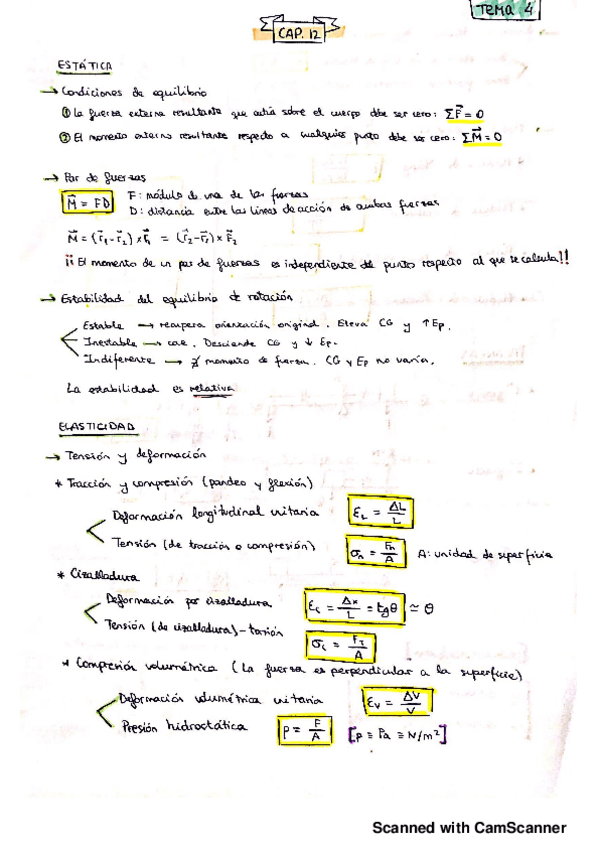 TEMA 4
CAP. 12
ESTÁTICA
→ Condiciones de equilibrio
① La fuerza externa resultante que actúa sobre el cuerpo debe ser cero: ΣF⃗ = 0
② El momento externo resultante respecto a cualquier punto debe ser cero: ΣM⃗ = 0
→ Par de fuerzas
M⃗ = FD
F: módulo de una de las fuerzas
D: distancia entre las líneas de acción de ambas fuerzas
M⃗ = (r⃗₁-r⃗₂) x F⃗₁ = (r⃗₂-r⃗₁) x F⃗₂
¡¡El momento de un par de fuerzas es independiente del punto respecto al que se calcula!!
→ Estabilidad del equilibrio de rotación
Estable → recupera orientación original. Eleva CG y ↑ Ep.
Inestable → cae. Desciende CG y ↓ Ep.
Indiferente → ∄ momento de fuerza. CG y Ep no varía.
La estabilidad es relativa
ELASTICIDAD
→ Tensión y deformación
* Tracción y compresión (pandeo y flexión)
Deformación longitudinal unitaria ε_L = ΔL/L
Tensión (de tracción o compresión) σ_n = F_n/A A: unidad de superficie
* Cizalladura
Deformación por cizalladura ε_c = Δx/L = tgθ ≃ θ
Tensión (de cizalladura) - torsión σ_c = /A
* Compresión volumétrica (La fuerza es perpendicular a la superficie)
Deformación volumétrica unitaria ε_V = ΔV/V
Presión hidrostática P = F/A [P ≡ Pa ≡ N/m²]
Scanned with CamScanner